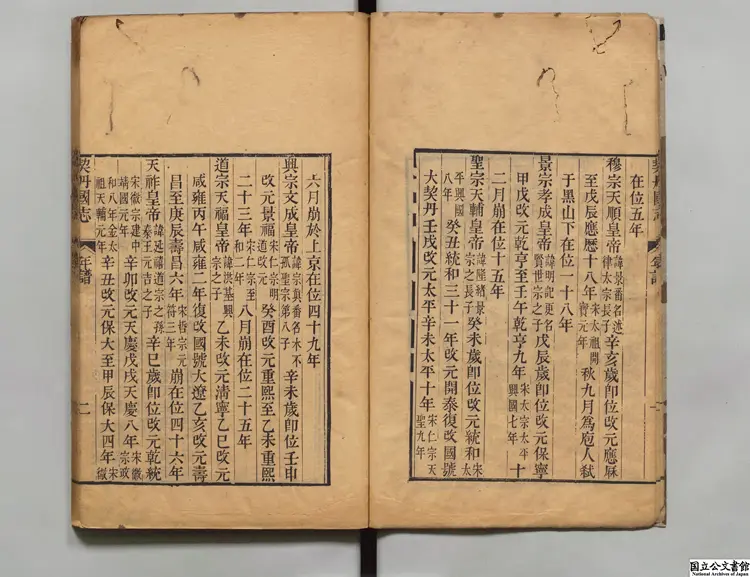 在位五年
穆宗天順皇帝諱景番名述律太宗長子辛亥歲即位改元應曆
至戊辰應曆十八年宋太祖開寶元年秋九月為庖人弒
于黑山下在位一十八年
景宗孝成皇帝諱明記更名賢世宗之子戊辰歲即位改元保寧
甲戊改元乾亨至壬午乾亨九年宋太宗太平興國七年十
二月崩在位十五年
聖宗天輔皇帝諱隆緒景宗之長子癸未歲即位改元統和宋太
平興國八年癸丑統和三十一年改元開泰復改國號
大契丹壬戌改元太平辛未太平十年宋仁宗天聖九年
契丹國志
年譜
六月崩於上京在位四十九年
興宗文成皇帝諱宗真番名木不孤聖宗第八子辛未歲即位壬申
改元景福宋仁宗明道改元癸酉改元重熙至乙未重熙
二十三年宋仁宗至和二年八月崩在位二十五年
道宗天福皇帝諱洪基興宗之子乙未改元清寧乙巳改元
咸雍丙午咸雍二年復改國號大遼乙亥改元壽
昌至庚辰壽昌六年宋哲宗元符三年崩在位四十六年
天祚皇帝諱延禧道宗之孫秦王元吉之子辛巳歲即位改元乾統
宋徽宗建中靖國元年辛卯改元天慶戊戌天慶八年宋徽宗政
和八年金太祖天輔元年辛丑改元保大至甲辰保大四年宋徽
契丹國志
年譜
二
国立公文書館
National Archives of Japan